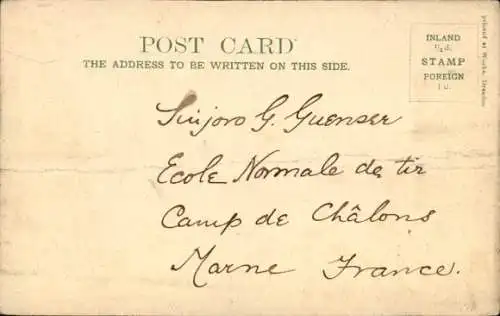 POST CARD
THE ADDRESS TO BE WRITTEN ON THIS SIDE.
INLAND
½d.
STAMP
FOREIGN
1d.
printed at Works, Dresden
Sinjoro G. Guenser
Ecole Normale de tir
Camp de Châlons
Marne France.